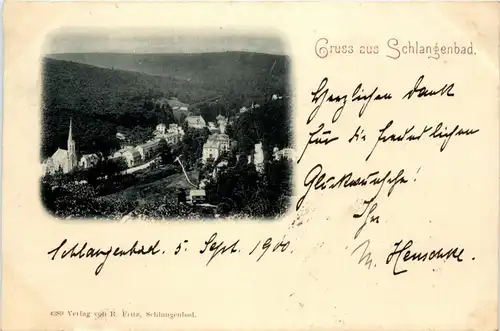 Gruss aus Schlangenbad.
Herzlichen Dank
für die freundlichen
Glückwünsche!
Ihr
M. Henschke.
Schlangenbad. 5. Sept. 1900
6289 Verlag von R. Fritz, Schlangenbad.